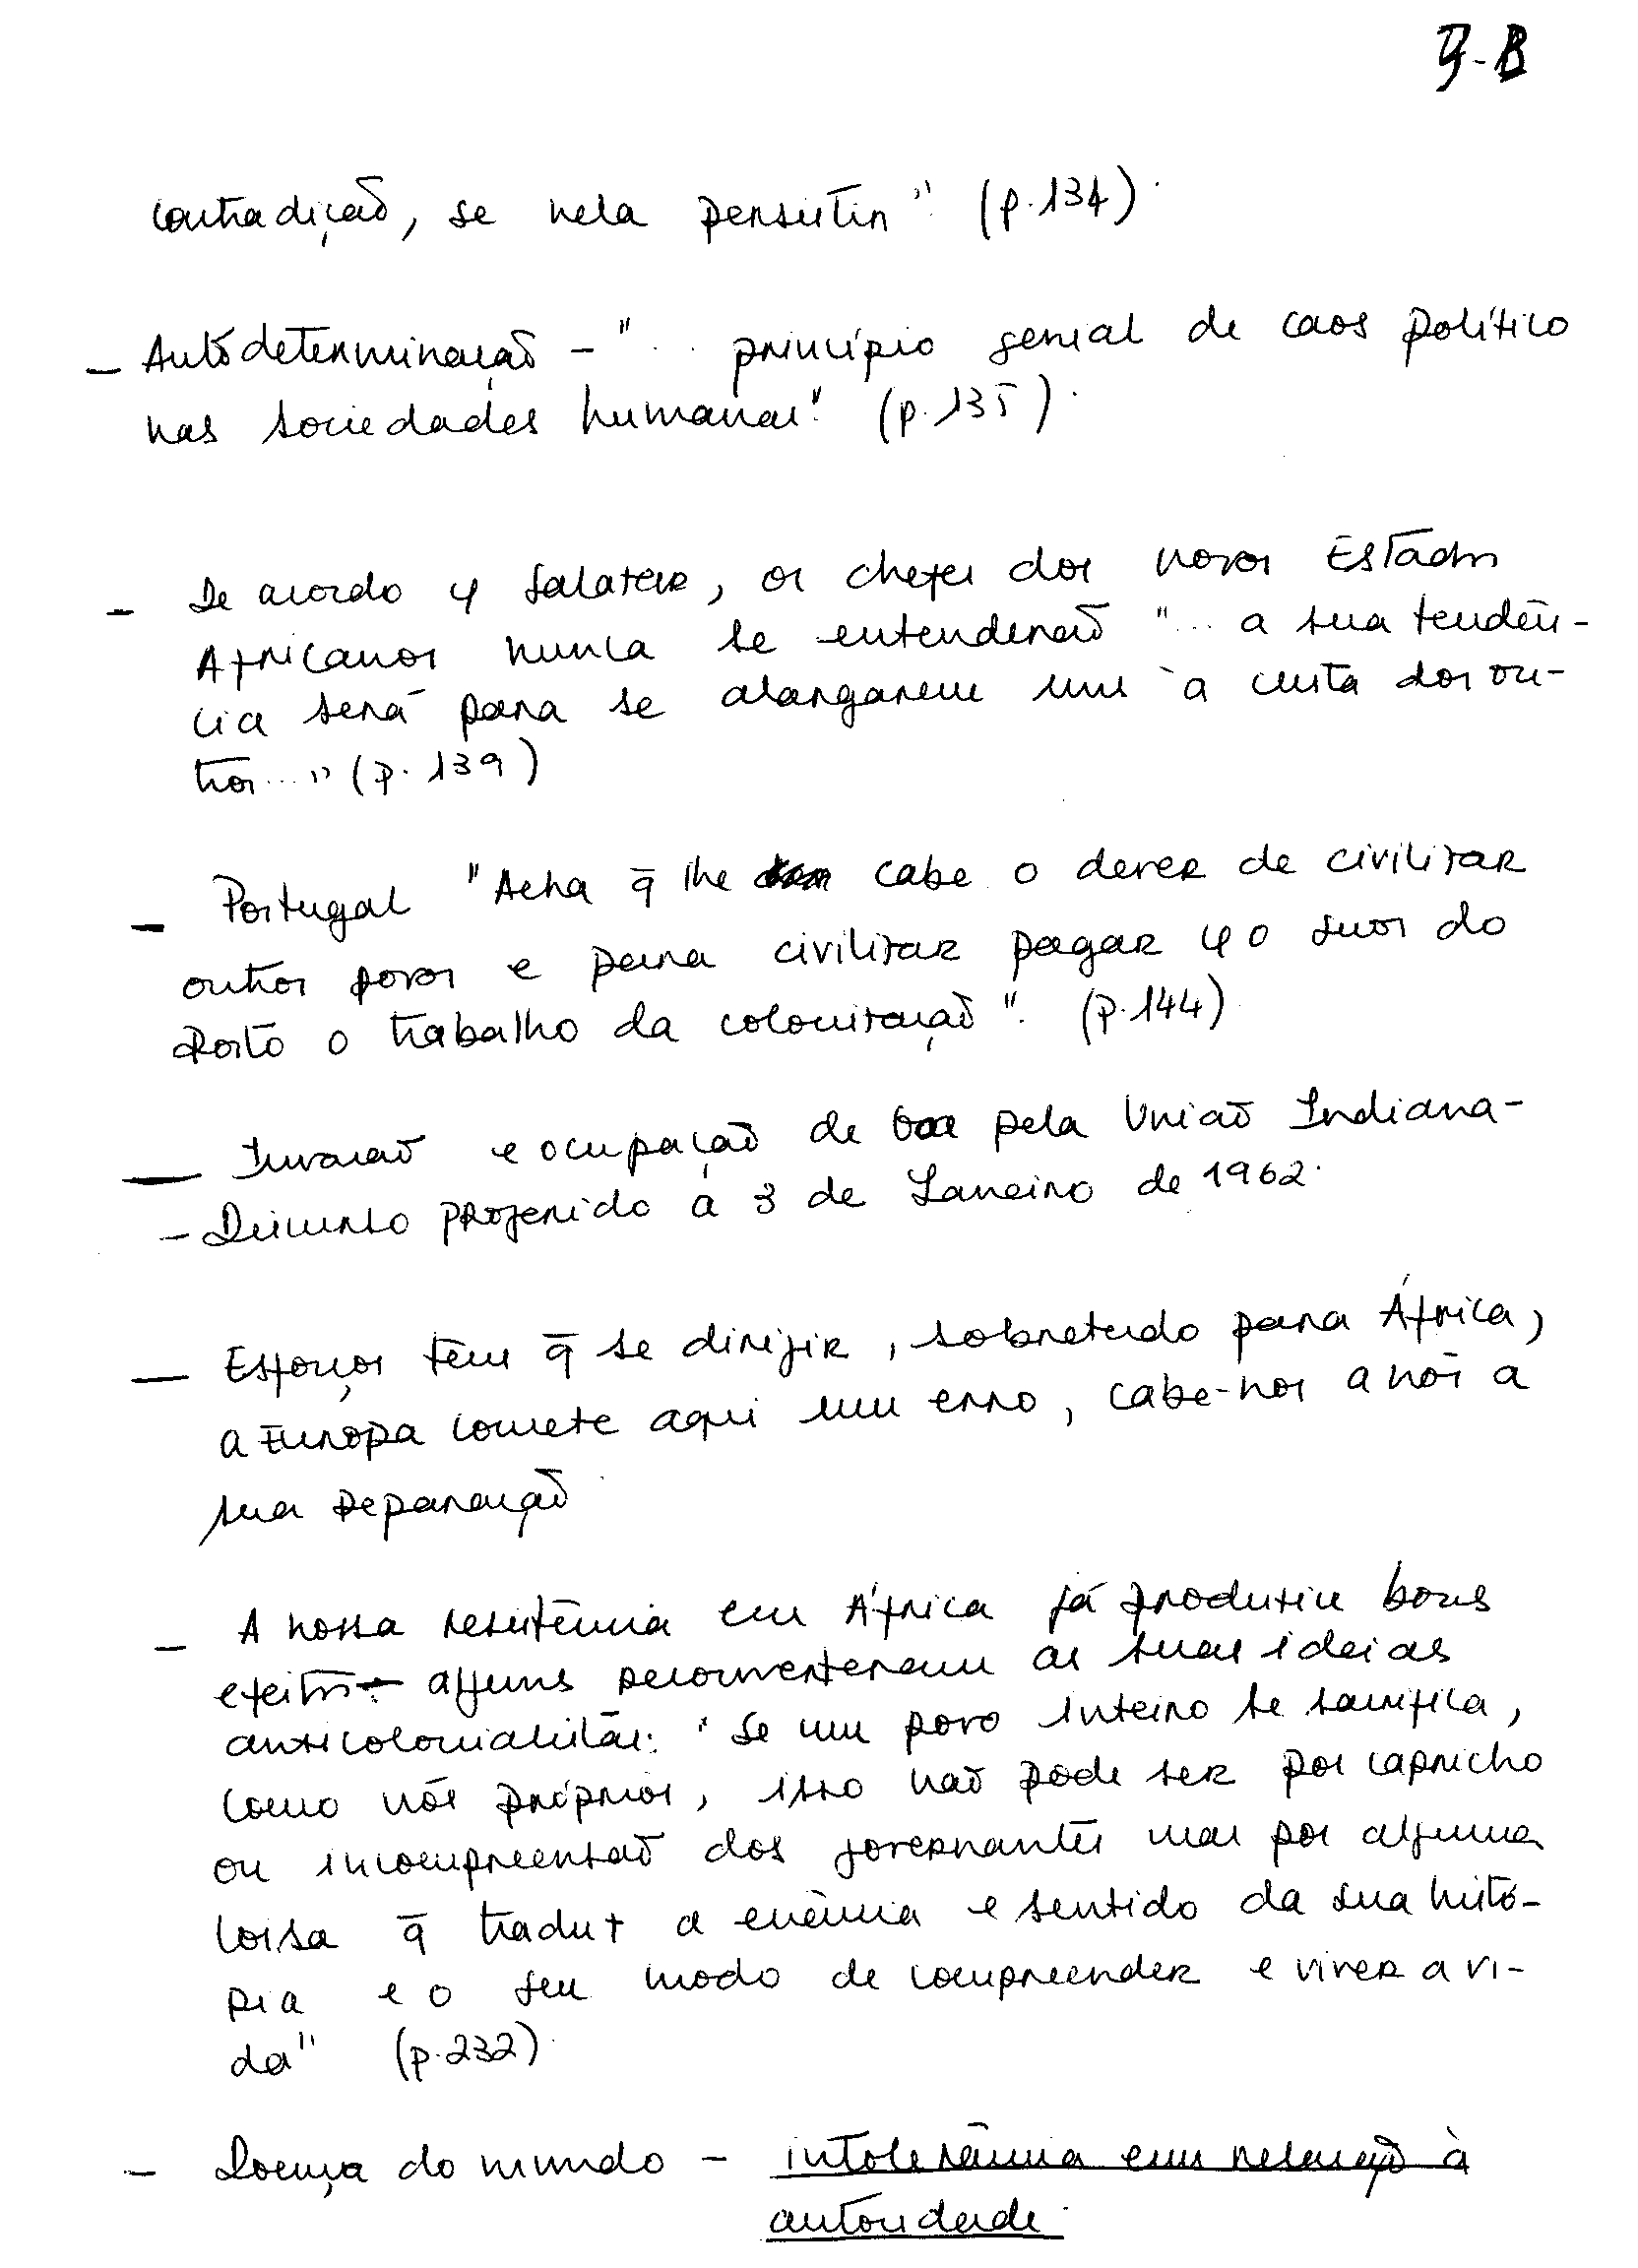 9-B
contradição, se nela persistir". (p.134).
- Autodeterminação - "... princípio genial de caos político
nas sociedades humanas". (p.135).
- De acordo c/ Salazar, os chefes dos novos Estados
Africanos nunca se entenderão "... a sua tendên-
cia será para se alargarem uns à custa dos ou-
tros..." (p. 139)
- Portugal "Acha q̄ lhe cabe o dever de civilizar
outros povos e para civilizar pagar c/ o suor do
rosto o trabalho da colonização". (p.144)
- Invasão e ocupação de Goa pela União Indiana -
- Discurso proferido a 3 de Janeiro de 1962.
- Esforços têm q̄ se dirigir, sobretudo para África,
a Europa comete aqui um erro, cabe-nos a nós a
sua reparação
- A nossa resistência em África já produziu bons
efeitos - alguns reconverteram as suas ideias
anticolonialistas: "Se um povo inteiro se sacrifica,
como nós próprios, isso não pode ser por capricho
ou incompreensão dos governantes mas por alguma
coisa q̄ traduz a essência e sentido da sua histó-
ria e o seu modo de compreender e viver a vi-
da" (p.232).
- Doença do mundo - intolerância em relação à
autoridade.